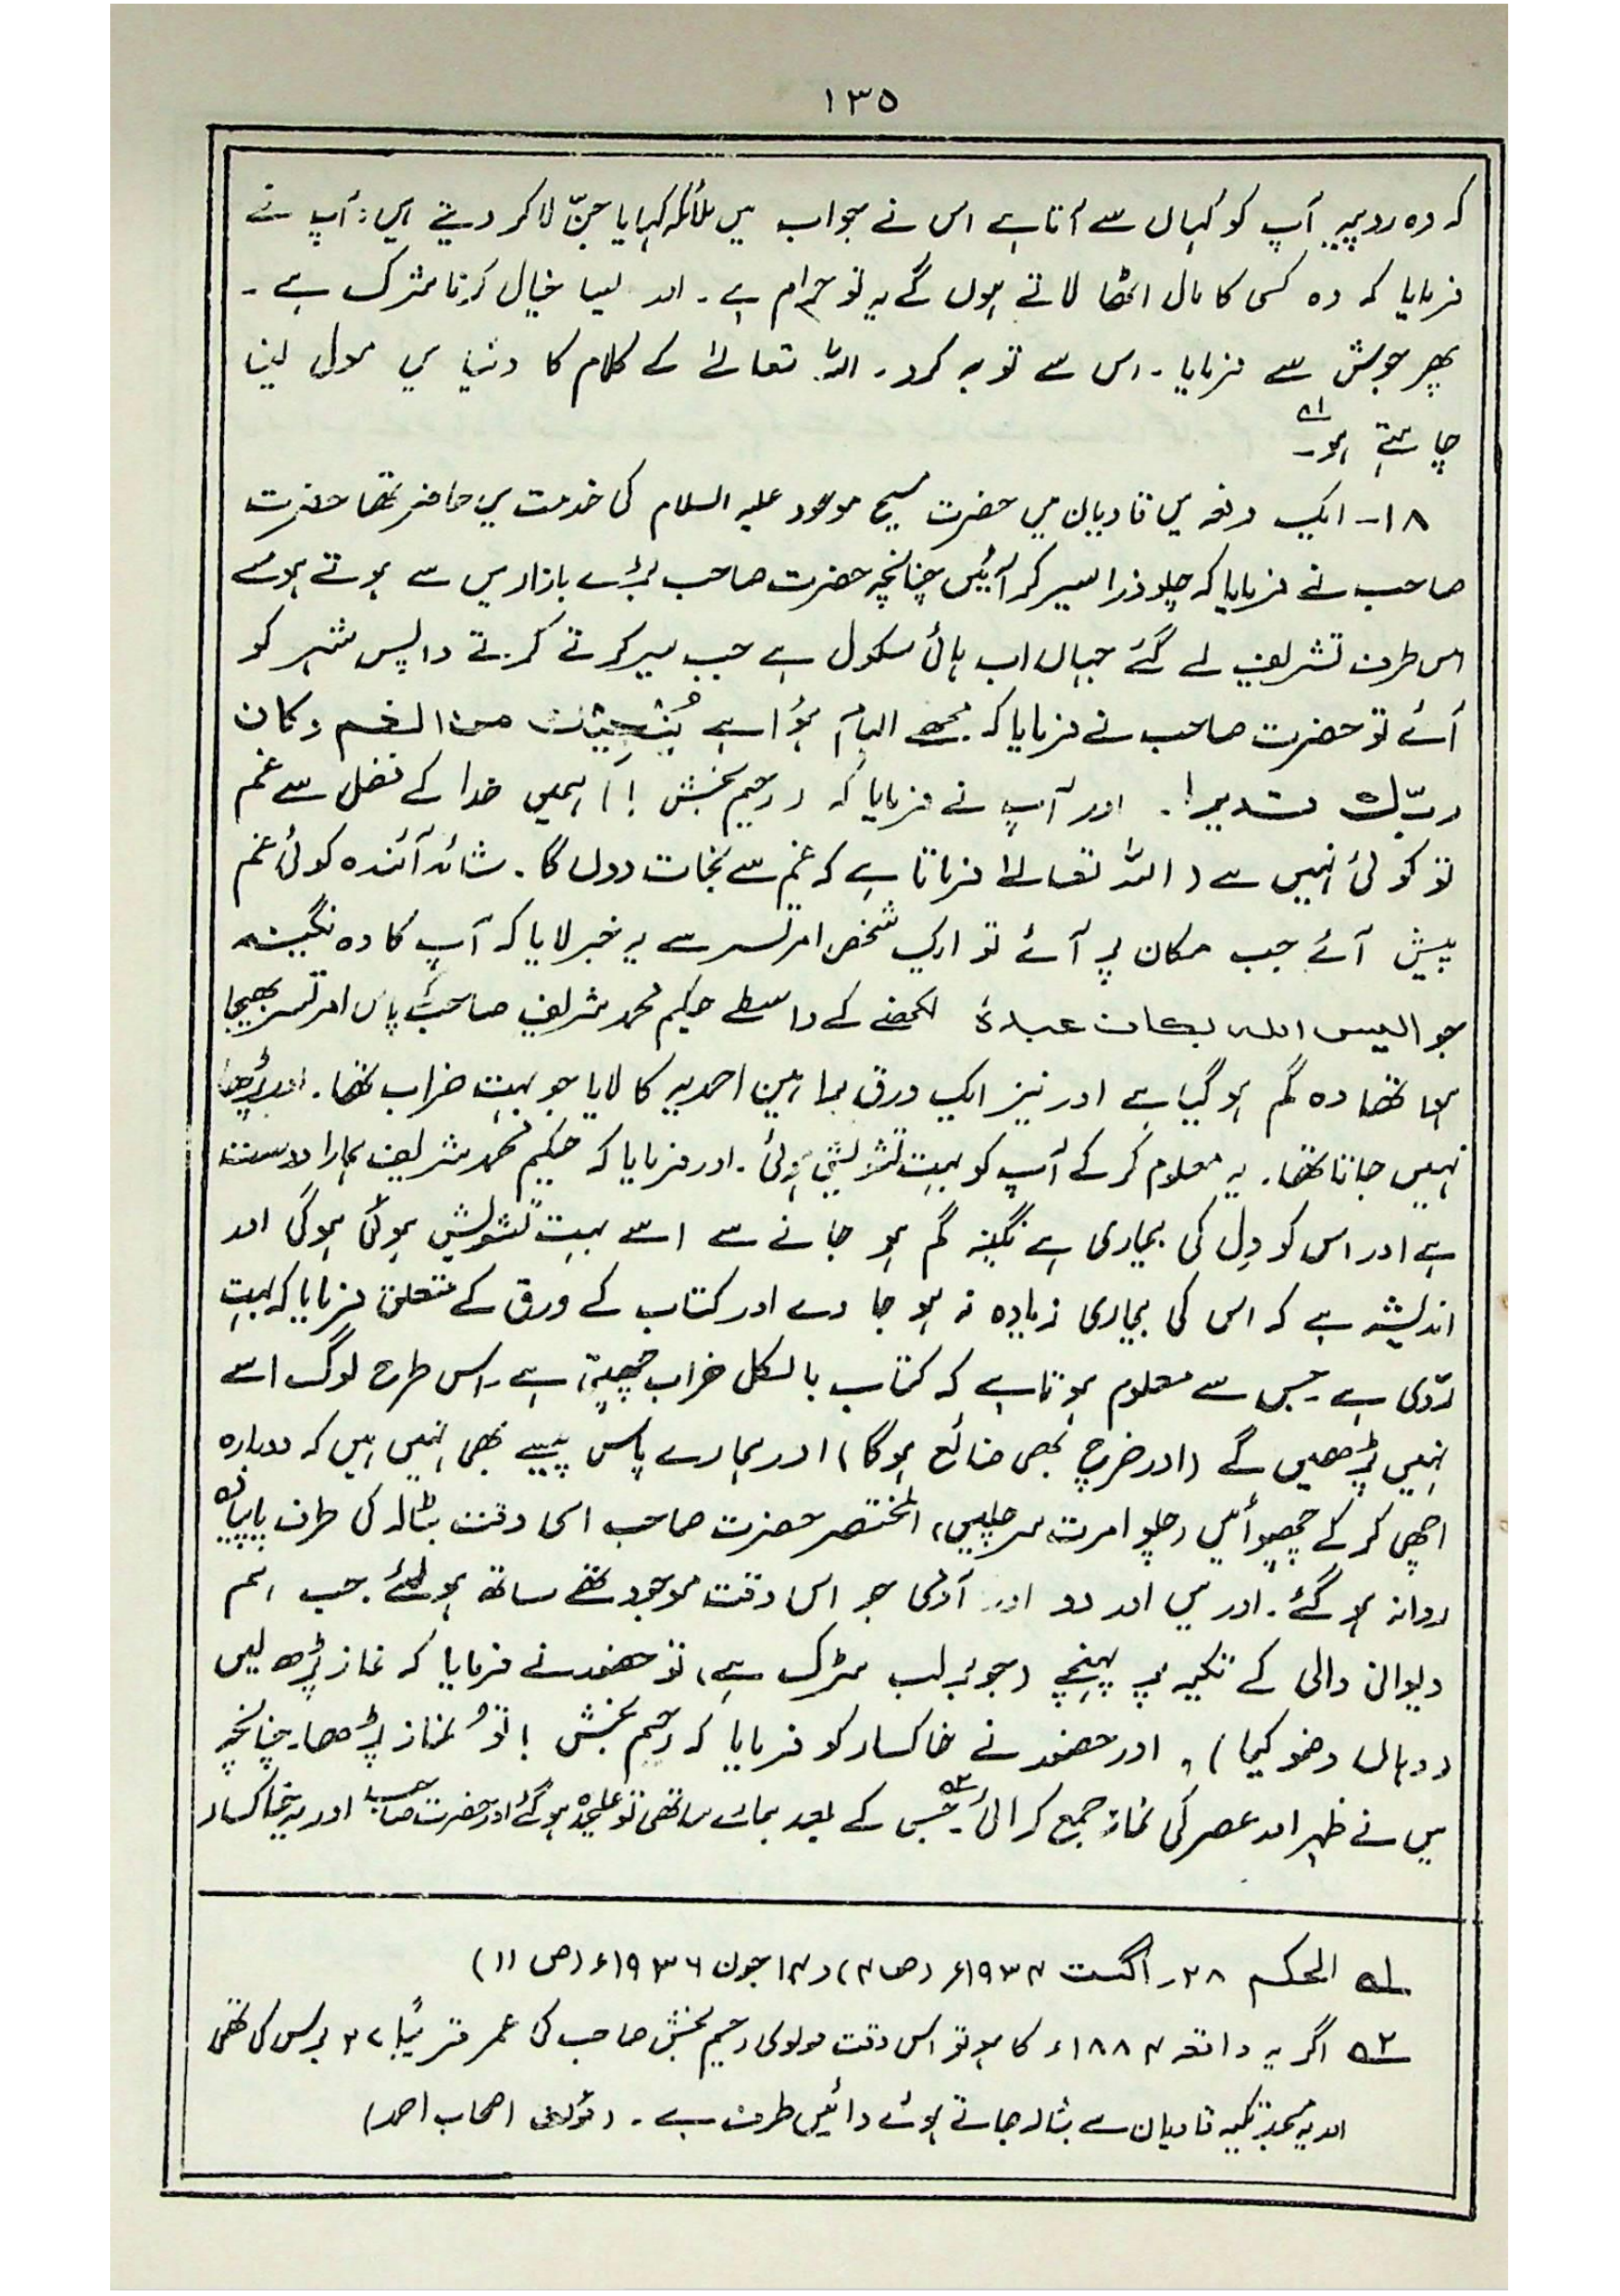 ۱۳۵
کہ وہ روپیہ آپ کو کہاں سے آتا ہے اس نے جواب میں ملائکہ کہا یا جنّ لا کر دیتے ہیں: آپ نے
فرمایا کہ وہ کسی کا مال اٹھا لاتے ہوں گے یہ تو حرام ہے۔ اور ایسا خیال کرنا شرک ہے۔
پھر جوش سے فرمایا۔ اس سے توبہ کرو۔ اللہ تعالےٰ کے کلام کا دنیا میں مول لینا
چاہتے ہو۔ ۱ھ
۱۸۔ ایک دفعہ میں قادیان میں حضرت مسیح موعود علیہ السلام کی خدمت میں حاضر تھا حضرت
صاحب نے فرمایا کہ چلو ذرا سیر کر آئیں چنانچہ حضرت صاحب بڑے بازار میں سے ہوتے ہوئے
اس طرف تشریف لے گئے جہاں اب ہائی سکول ہے جب سیر کرتے کرتے واپس شہر کو
آئے تو حضرت صاحب نے فرمایا کہ مجھے الہام ہؤا ہے یُنَجِّیْکَ من الغم وکان
ربّک قدیرا۔ اور آپ نے فرمایا کہ (رحیم بخش!) ہمیں خدا کے فضل سے غم
تو کوئی نہیں ہے (اللہ تعالےٰ فرماتا ہے کہ غم سے نجات دوں گا۔ شائد آئندہ کوئی غم
پیش آئے جب مکان پر آئے تو ایک شخص امرتسر سے یہ خبر لایا کہ آپ کا وہ نگینہ
جو الیس اللہ بکاف عبدہٗ لکھنے کے واسطے حکیم محمد شریف صاحب کے پاس امرتسر بھیجا
ہوا تھا وہ گم ہو گیا ہے اور نیز ایک ورق براہین احمدیہ کا لایا جو بہت خراب تھا۔ اور پڑھا
نہیں جاتا تھا۔ یہ معلوم کر کے آپ کو بہت تشویش ہوئی۔ اور فرمایا کہ حکیم محمد شریف ہمارا دوست
ہے اور اس کو دِل کی بیماری ہے نگینہ گم ہو جانے سے اسے بہت تشویش ہوئی ہوگی اور
اندیشہ ہے کہ اس کی بیماری زیادہ نہ ہو جاوے اور کتاب کے ورق کے متعلق فرمایا کہ بہت
ردّی ہے جس سے معلوم ہوتا ہے کہ کتاب بالکل خراب چھپتی ہے۔ اس طرح لوگ اسے
نہیں پڑھیں گے (اور خرچ بھی ضائع ہوگا) اور ہمارے پاس پیسے بھی نہیں ہیں کہ دوبارہ
اچھی کر کے چھپوائیں (چلو امرت سر چلیں) المختصر حضرت صاحب اسی وقت بٹالہ کی طرف پاپیادہ
روانہ ہو گئے۔ اور میں اور دو اور آدمی جو اس وقت موجود تھے ساتھ ہو لئے۔ جب ہم
دیوانی والی کے تکیہ پر پہنچے (جو برلب سڑک ہے) تو حضور نے فرمایا کہ نماز پڑھ لیں
(وہاں وضو کیا)، اور حضور نے خاکسار کو فرمایا کہ رحیم بخش! تُو نماز پڑھا۔ چنانچہ
میں نے ظہر اور عصر کی نماز جمع کرائی۔ ۲ھ جس کے بعد ہمارے ساتھی تو علیحدہ ہو گئے اور حضرت صاحب اور یہ خاکسار
۱ھ الحکم ۲۸۔ اگست ۱۹۳۴ء (ص۴) و ۱۴ جون ۱۹۳۶ء (ص ۱۱)
۲ھ اگر یہ واقعہ ۱۸۸۴ء کا ہو تو اس وقت مولوی رحیم بخش صاحب کی عمر قریباً برس کی تھی
اور یہ مسجد تکیہ قادیان سے بٹالہ جاتے ہوئے دائیں طرف ہے۔ (مؤلف اصحاب احمد)